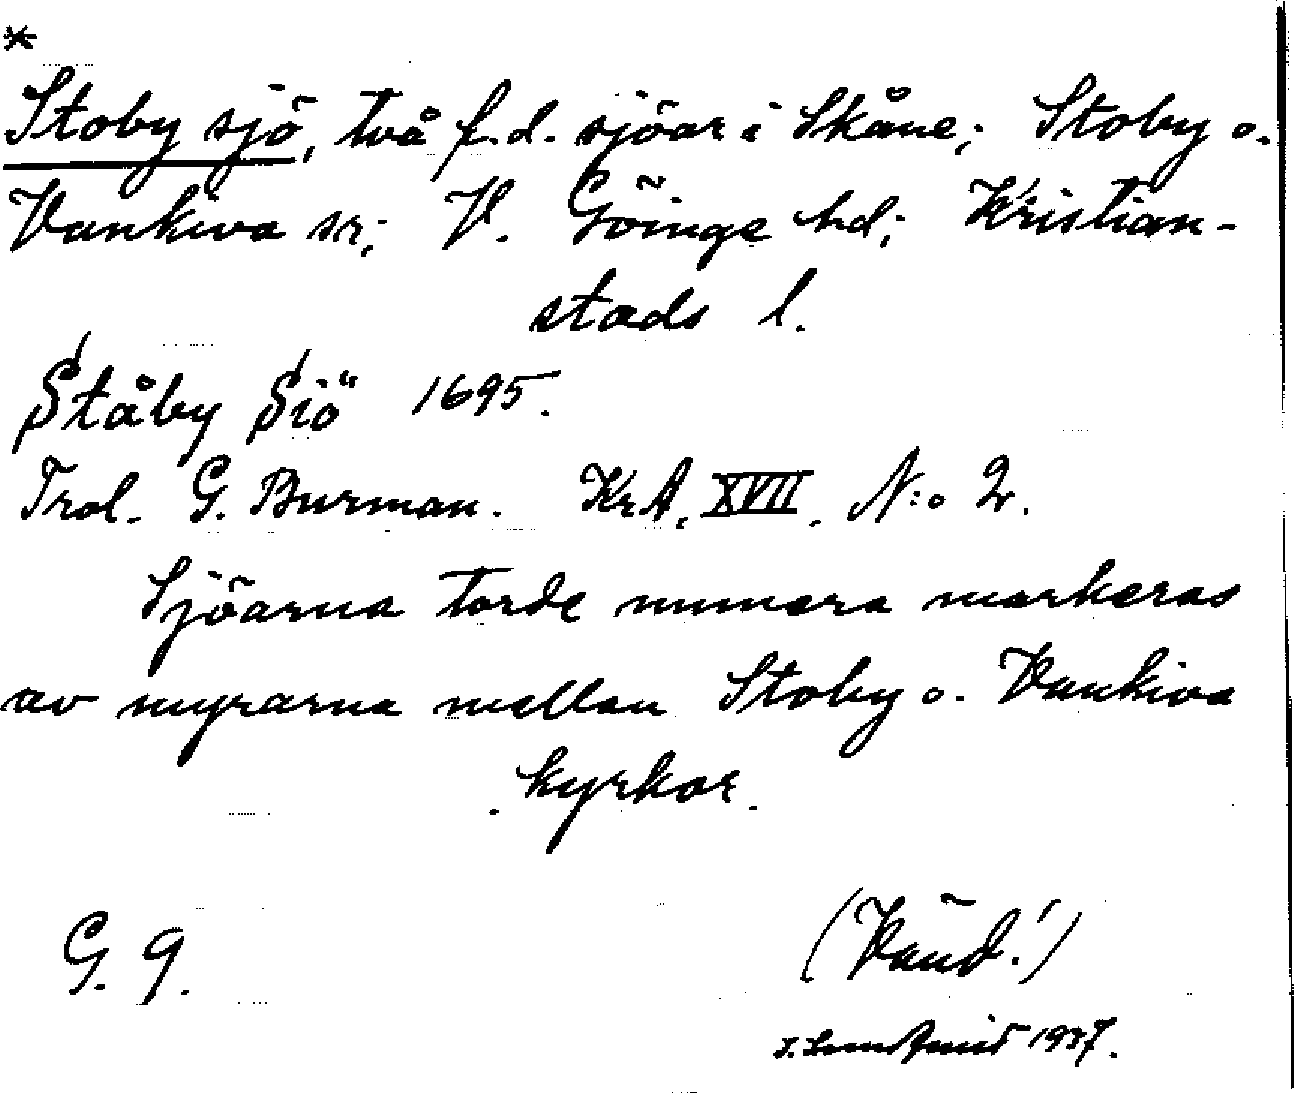 *
Stoby sjö, två f.d. sjöar i Skåne; Stoby o.
Vankiva sr; V. Göinge hd; Kristian-
stads l.
Ståby Siö 1695.
Trol. G. Burman. KrA, XVII, N:o 2.
Sjöarna torde numera markeras
av myrarna mellan Stoby o. Vankiva
kyrkor.
G. 9. (Vänd!)
1937.